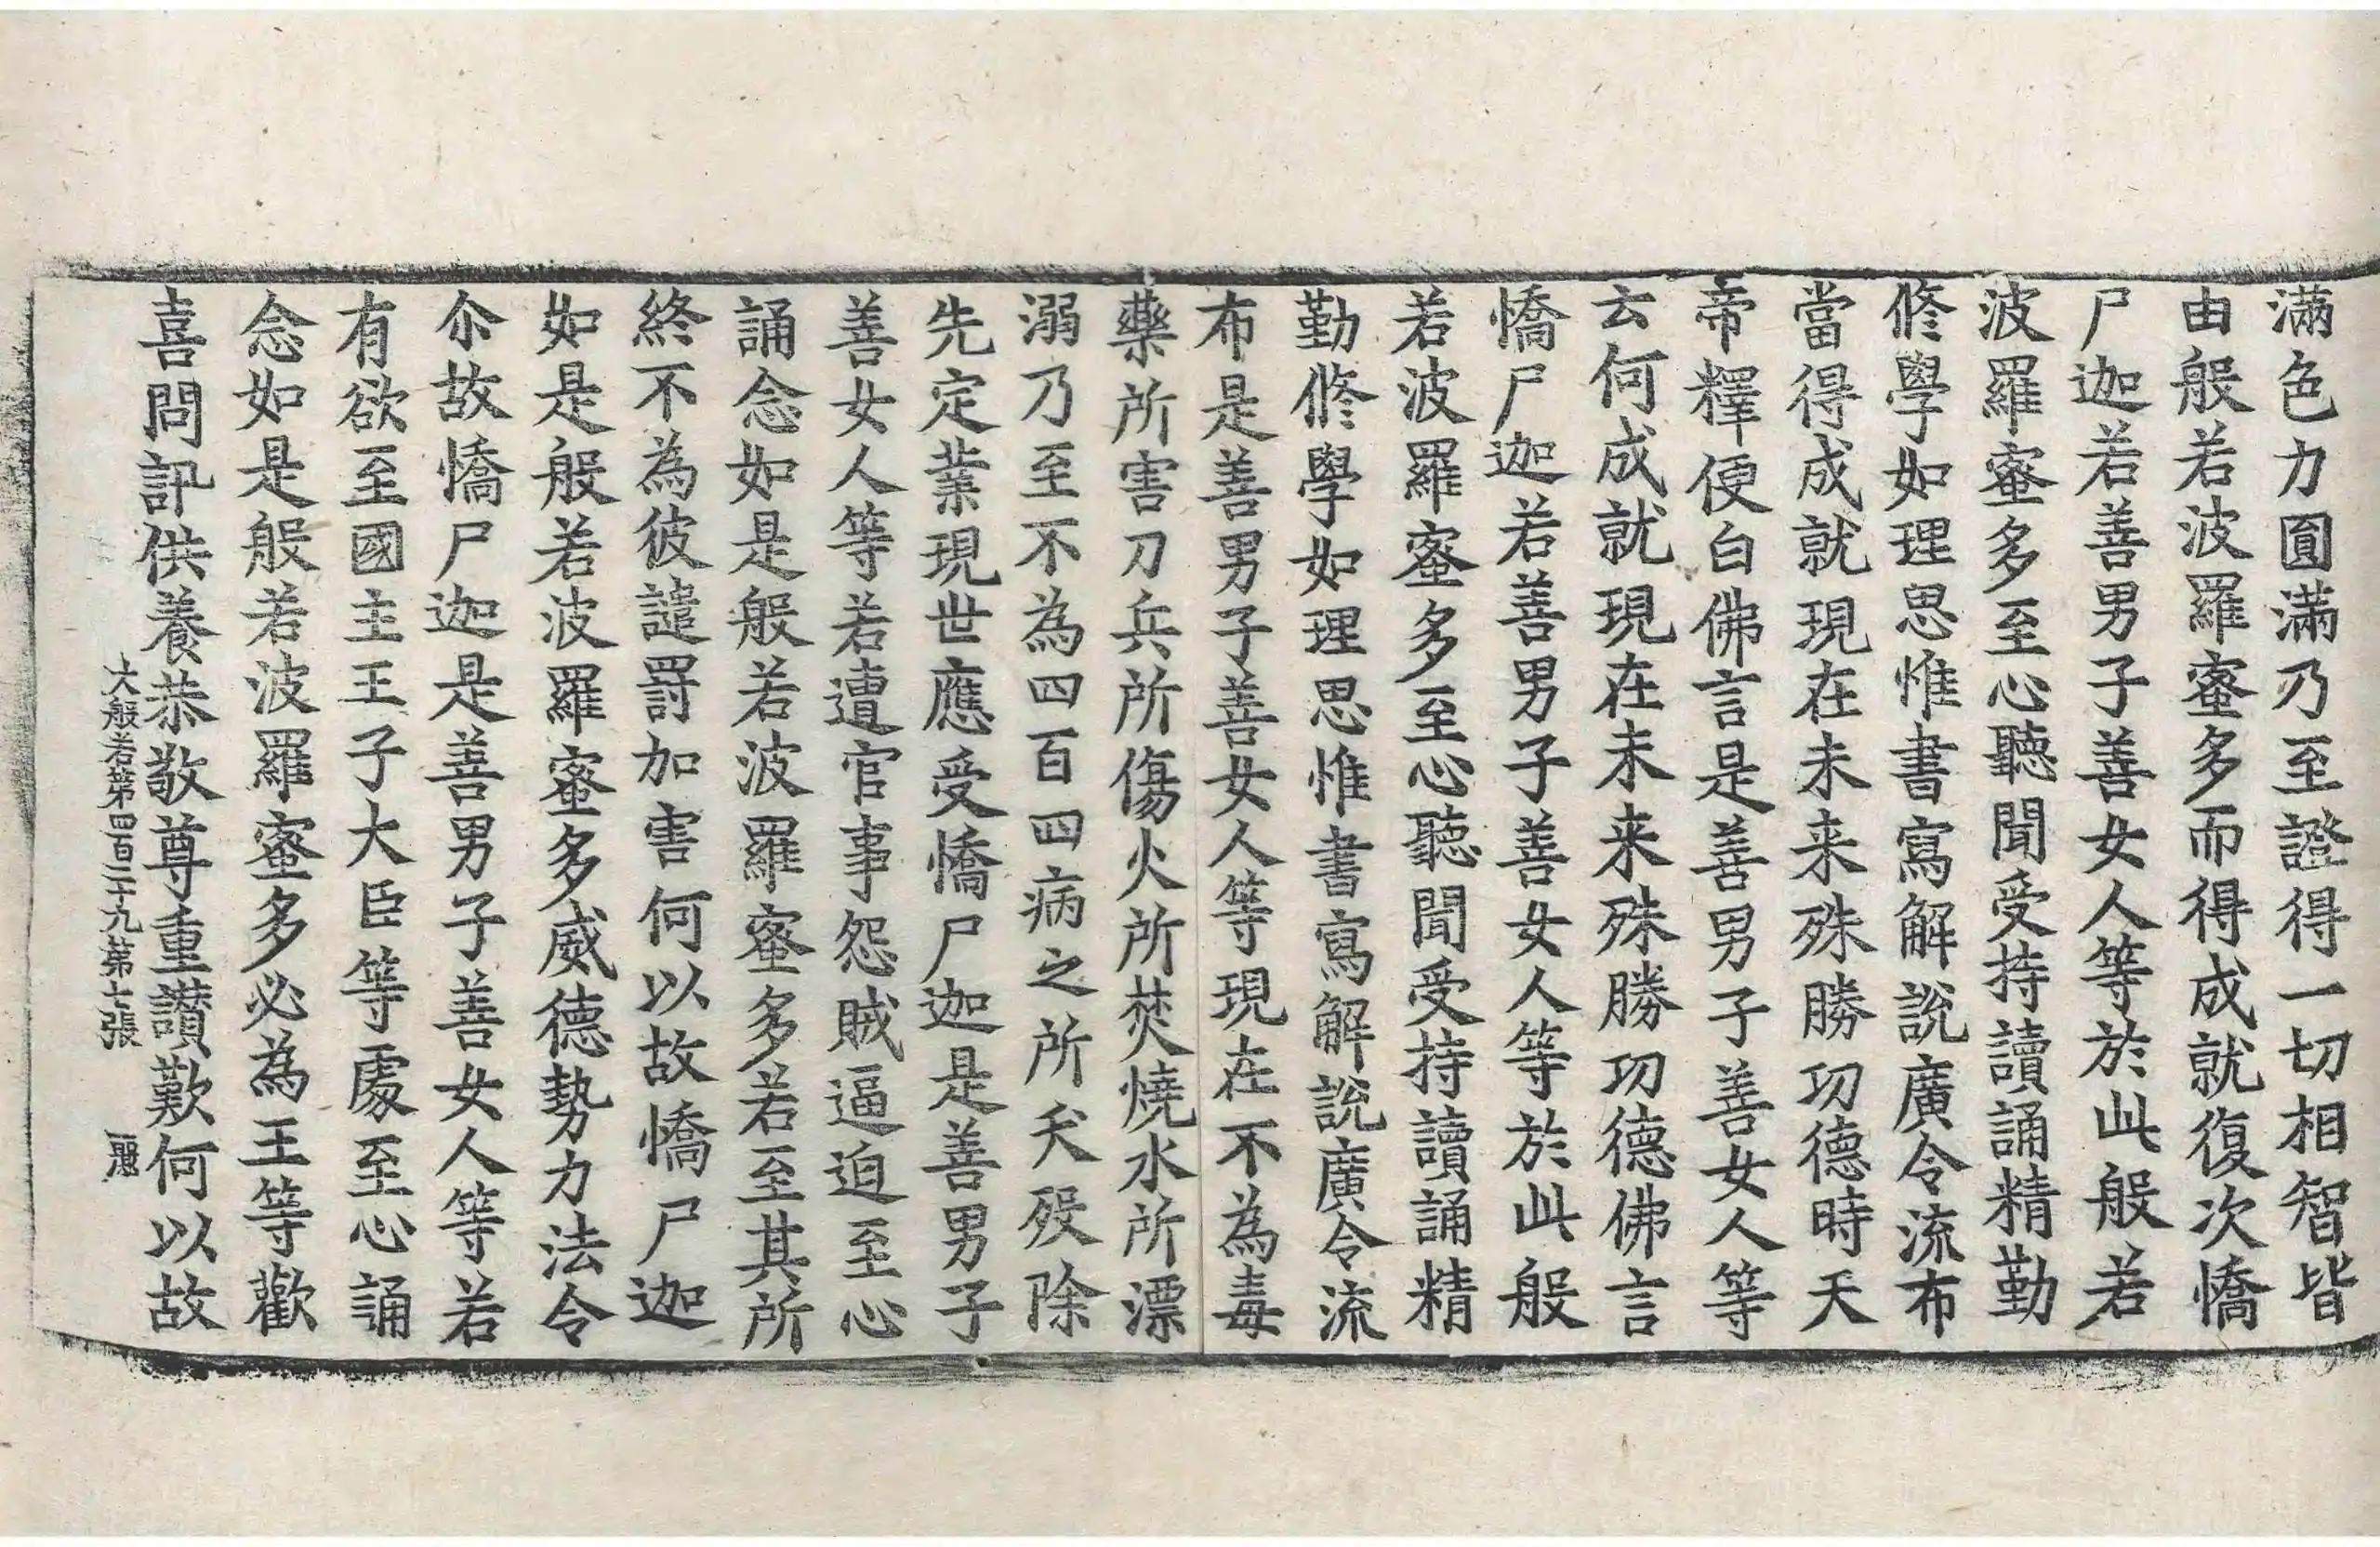 滿色力圓滿乃至證得一切相智皆
由般若波羅蜜多而得成就復次憍
尸迦若善男子善女人等於此般若
波羅蜜多至心聽聞受持讀誦精勤
修學如理思惟書寫解說廣令流布
當得成就現在未来殊勝功德時天
帝釋便白佛言是善男子善女人等
云何成就現在未来殊勝功德佛言
憍尸迦若善男子善女人等於此般
若波羅蜜多至心聽聞受持讀誦精
勤修學如理思惟書寫解說廣令流
布是善男子善女人等現在不為毒
藥所害刀兵所傷火所焚燒水所漂
溺乃至不為四百四病之所夭歿除
先定業現世應受憍尸迦是善男子
善女人等若遭官事怨賊逼迫至心
誦念如是般若波羅蜜多若至其所
終不為彼譴罰加害何以故憍尸迦
如是般若波羅蜜多威德勢力法令
尒故憍尸迦是善男子善女人等若
有欲至國主王子大臣等處至心誦
念如是般若波羅蜜多必為王等歡
喜問訊供養恭敬尊重讚歎何以故
大般若第四百二十九第七張